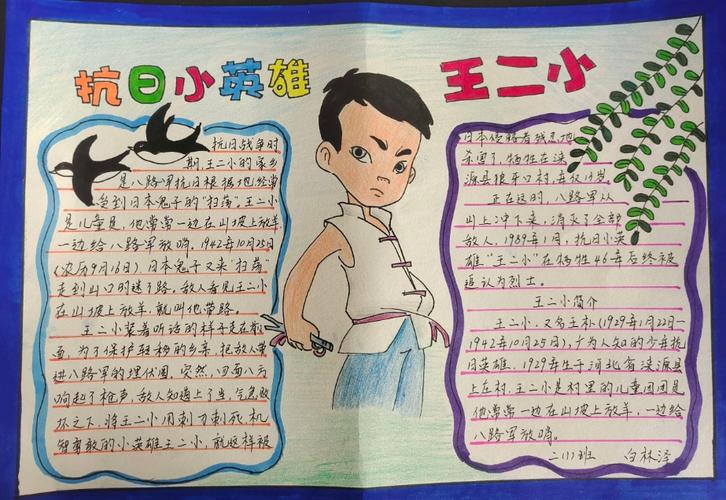 抗日小英雄
王二小
抗日战争时
期,王二小的家乡
是八路军抗日根据地,经常
受到日本鬼子的“扫荡”,王二小
是儿童团员,他常常一边在山坡上放羊,
一边给八路军放哨,1942年10月25日
(农历9月16日),日本鬼子又来“扫荡”
走到山口时迷了路,敌人看见王二小
在山坡上放羊,就叫他带路。
王二小装着听话的样子走在前
面,为了保护躲藏的乡亲,把敌人带
进八路军的埋伏圈,突然,四面八方
响起了枪声,敌人知道上了当,气急败
坏之下,将王二小用刺刀刺死,机
智勇敢的小英雄王二小,就这样被
日本侵略者残忍地
杀害了,牺牲在涞
源县狼牙口村,年仅13岁。
正在这时,八路军从
山上冲下来,消灭了全部
敌人,1989年1月,抗日小英
雄“王二小”在牺牲46年后终被
追认为烈士。
王二小简介
王二小,又名王朴(1929年1月22日-
1942年10月25日),广为人知的少年抗
日英雄,1929年生于河北省涞源县
上庄村,王二小是村里的儿童团团员
他常常一边在山坡上放羊,一边给
八路军放哨。
二(1)班 白林泽